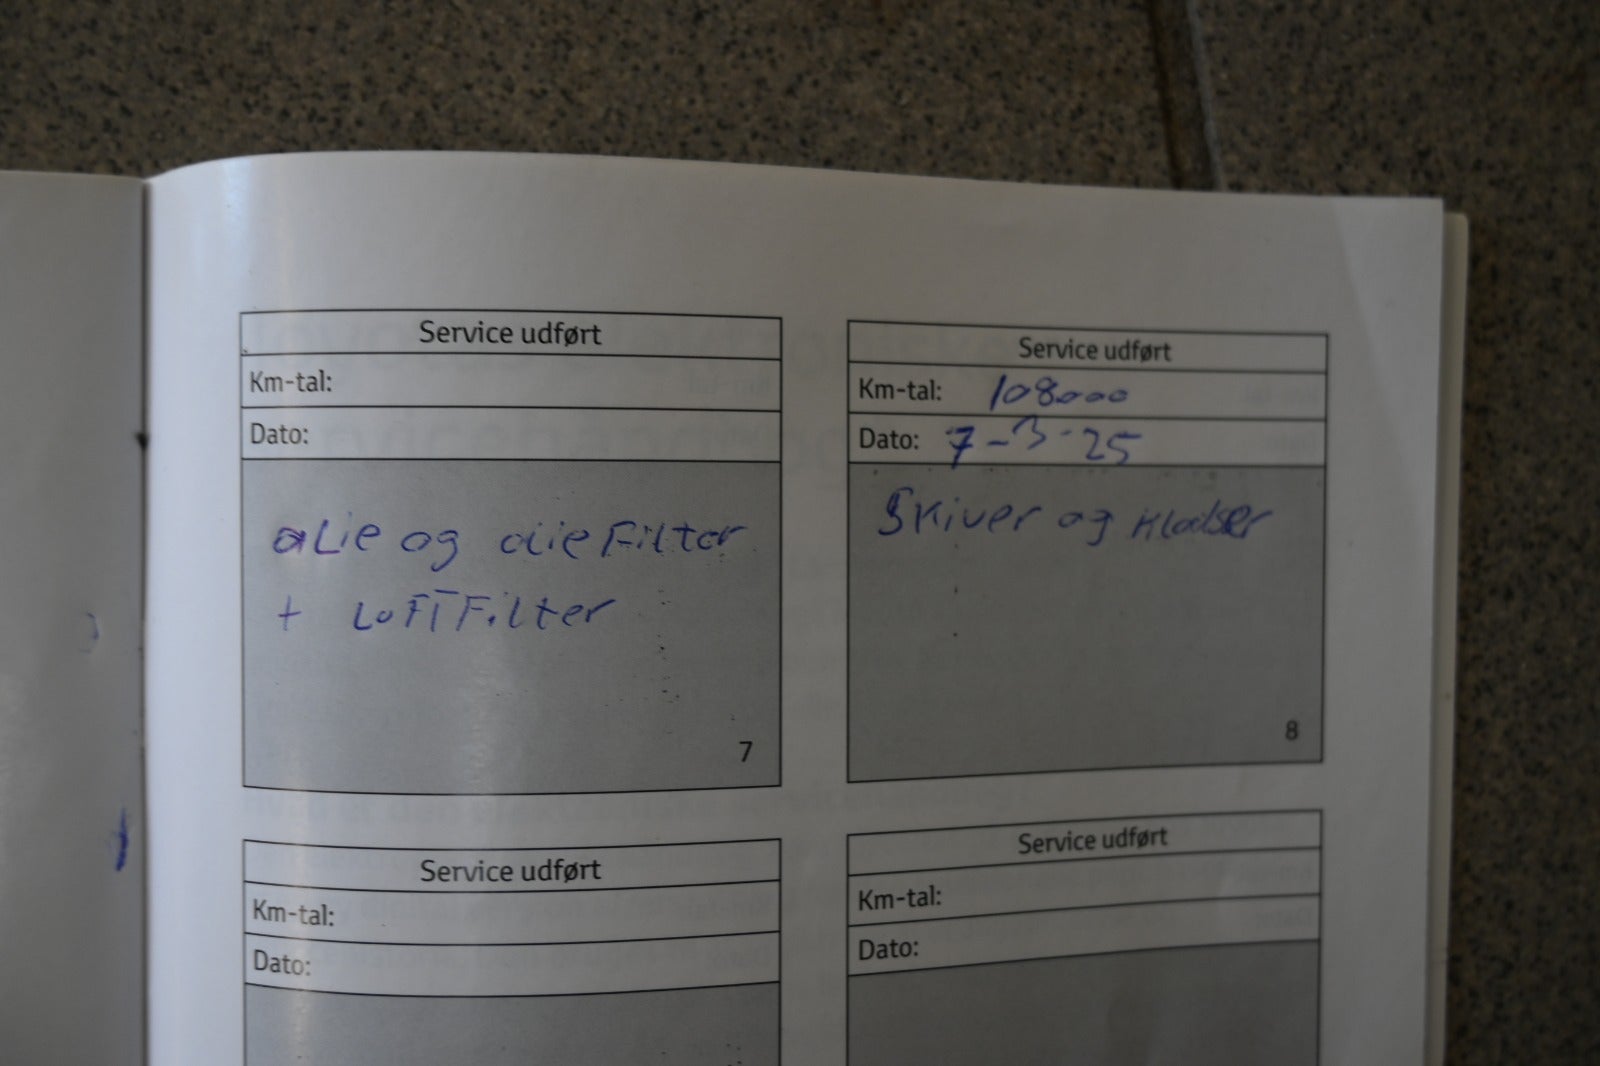 Service udført
Km-tal:
Dato:
olie og oliefilter
+ LuFTFilter
7
Service udført
Km-tal: 108000
Dato: 7-3-25
Skiver og klodser
8
Service udført
Km-tal:
Dato:
Service udført
Km-tal:
Dato: